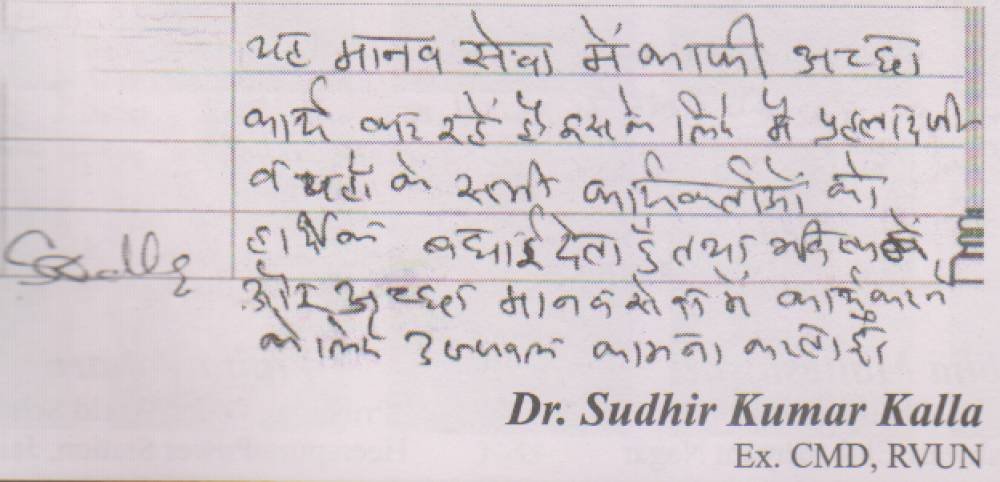 यह मानव सेवा में काफी अच्छा
कार्य कर रहें है इसके लिए मैं प्रहलाद जी
व यहाँ के सभी कार्यकर्ताओं को
हार्दिक बधाई देता हूँ तथा भविष्य में
और अच्छा मानव सेवा में कार्य करने
के लिए उज्जवल कामना करता हूँ।
Dr. Sudhir Kumar Kalla
Ex. CMD, RVUN